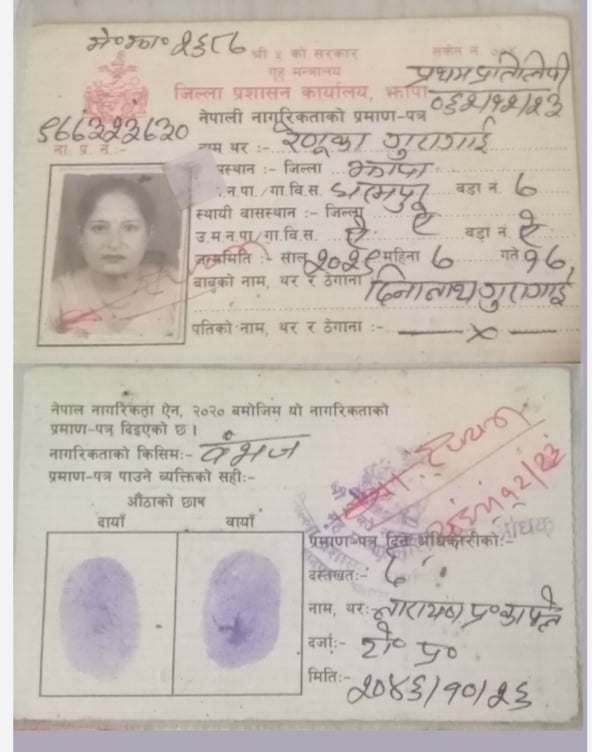 मे॰का॰ २३८८
श्री ५ को सरकार
गृह मन्त्रालय
जिल्ला प्रशासन कार्यालय, झापा
प्रथम प्रतिलिपी
०६२/१२/२३
नेपाली नागरिकताको प्रमाण-पत्र
ना. प्र. नं.:-
नाम थर :- रेणूका गुरागाई
जिल्ला - झापा
न.पा./गा.वि.स. धरमपुर वडा नं. ७
स्थायी वासस्थान :- जिल्ला ऐ
उ.म.न.पा./गा.वि.स. ऐ वडा नं. ऐ
जन्ममिति :- साल २०२९ महिना ७ गते १६
बाबुको नाम, थर र ठेगाना दिनानाथ गुरागाई
पतिको नाम, थर र ठेगाना :- ——x——
नेपाल नागरिकता ऐन, २०२० बमोजिम यो नागरिकताको
प्रमाण-पत्र दिइएको छ।
नागरिकताको किसिम:- वंशज
प्रमाण-पत्र पाउने व्यक्तिको सही:-
औंठाको छाप
दायाँ बायाँ
प्रमाण-पत्र दिने अधिकारीको:-
दस्तखत:-
नाम, थर: नारायण प्र॰ काफ्ले
दर्जा:-
मिति:- २०४६/१०/२६